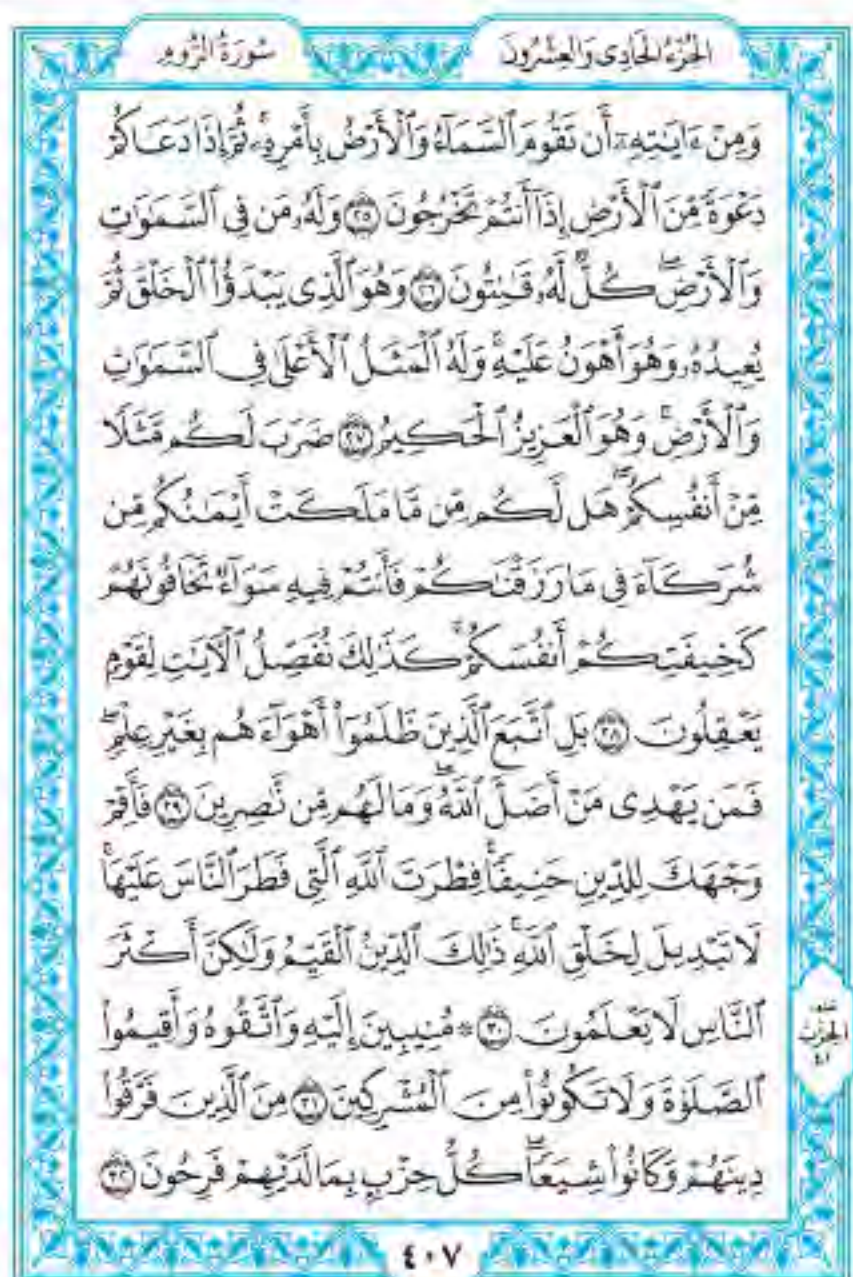 سُورَةُ الرُّومِ
الجُزْءُ الحَادِى وَالعِشْرُونَ
وَمِنْ ءَايَٰتِهِۦٓ أَن تَقُومَ ٱلسَّمَآءُ وَٱلْأَرْضُ بِأَمْرِهِۦۚ ثُمَّ إِذَا دَعَاكُمْ
دَعْوَةً مِّنَ ٱلْأَرْضِ إِذَآ أَنتُمْ تَخْرُجُونَ ۝٢٥ وَلَهُۥ مَن فِى ٱلسَّمَٰوَٰتِ
وَٱلْأَرْضِۖ كُلٌّ لَّهُۥ قَٰنِتُونَ ۝٢٦ وَهُوَ ٱلَّذِى يَبْدَؤُا۟ ٱلْخَلْقَ ثُمَّ
يُعِيدُهُۥ وَهُوَ أَهْوَنُ عَلَيْهِۚ وَلَهُ ٱلْمَثَلُ ٱلْأَعْلَىٰ فِى ٱلسَّمَٰوَٰتِ
وَٱلْأَرْضِۚ وَهُوَ ٱلْعَزِيزُ ٱلْحَكِيمُ ۝٢٧ ضَرَبَ لَكُم مَّثَلًا
مِّنْ أَنفُسِكُمْۖ هَل لَّكُم مِّن مَّا مَلَكَتْ أَيْمَٰنُكُم مِّن
شُرَكَآءَ فِى مَا رَزَقْنَٰكُمْ فَأَنتُمْ فِيهِ سَوَآءٌ تَخَافُونَهُمْ
كَخِيفَتِكُمْ أَنفُسَكُمْۚ كَذَٰلِكَ نُفَصِّلُ ٱلْءَايَٰتِ لِقَوْمٍ
يَعْقِلُونَ ۝٢٨ بَلِ ٱتَّبَعَ ٱلَّذِينَ ظَلَمُوٓا۟ أَهْوَآءَهُم بِغَيْرِ عِلْمٍۖ
فَمَن يَهْدِى مَنْ أَضَلَّ ٱللَّهُۖ وَمَا لَهُم مِّن نَّٰصِرِينَ ۝٢٩ فَأَقِمْ
وَجْهَكَ لِلدِّينِ حَنِيفًاۚ فِطْرَتَ ٱللَّهِ ٱلَّتِى فَطَرَ ٱلنَّاسَ عَلَيْهَاۚ
لَا تَبْدِيلَ لِخَلْقِ ٱللَّهِۚ ذَٰلِكَ ٱلدِّينُ ٱلْقَيِّمُ وَلَٰكِنَّ أَكْثَرَ
ٱلنَّاسِ لَا يَعْلَمُونَ ۝٣٠ ۞ مُنِيبِينَ إِلَيْهِ وَٱتَّقُوهُ وَأَقِيمُوا۟
ٱلصَّلَوٰةَ وَلَا تَكُونُوا۟ مِنَ ٱلْمُشْرِكِينَ ۝٣١ مِنَ ٱلَّذِينَ فَرَّقُوا۟
دِينَهُمْ وَكَانُوا۟ شِيَعًاۖ كُلُّ حِزْبٍۭ بِمَا لَدَيْهِمْ فَرِحُونَ ۝٣٢
الحِزْب
٤١
٤٠٧